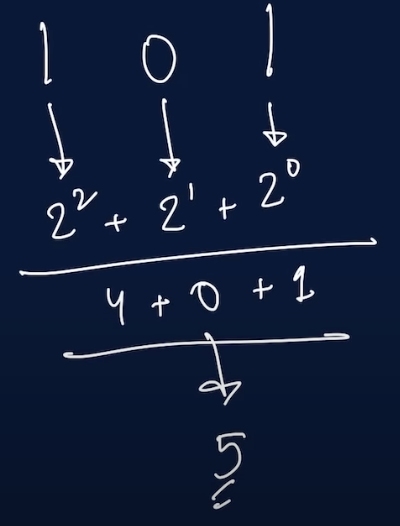 1 0 1
2² + 2¹ + 2⁰
4 + 0 + 1
5